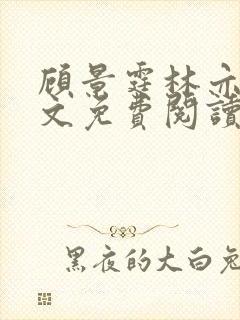 顾景霆林亦
文免費閱讀
黑夜的大白兔